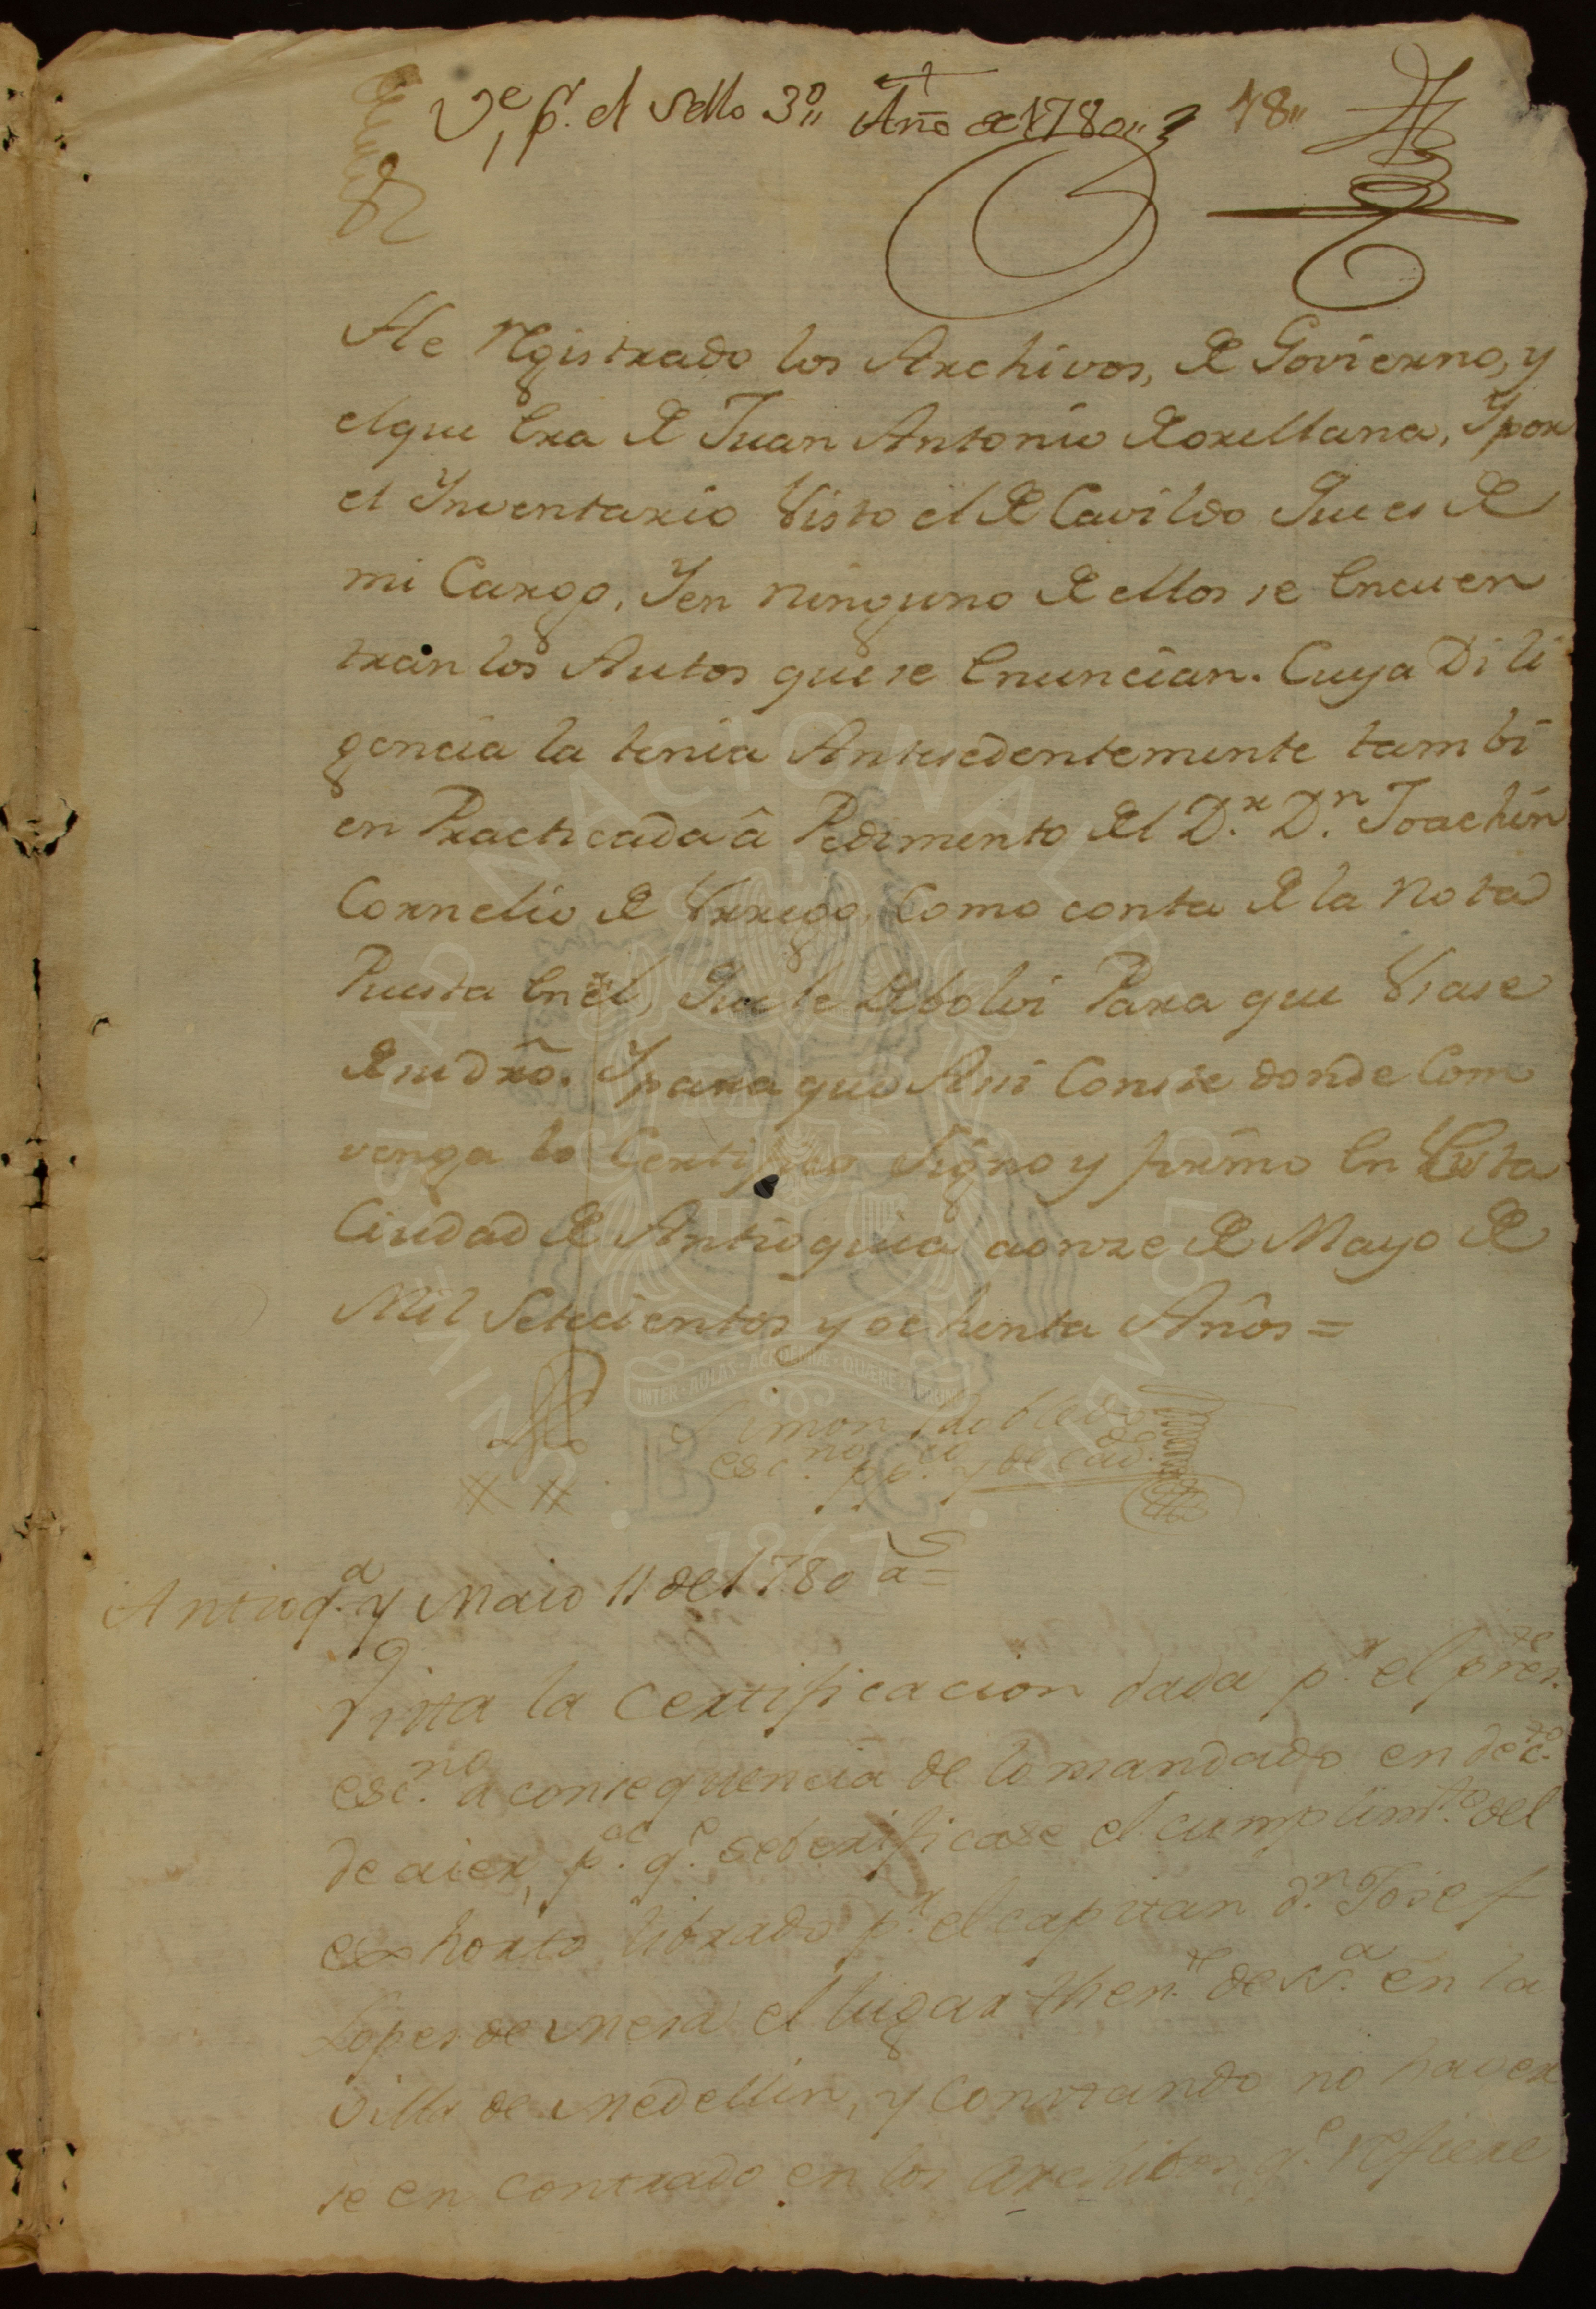 Ve, pr. el sello 3o,, Año de 1780,, 78,,
He registrado los Archivos, de Govierno, y
el que Era de Juan Antonio de orellana, Y por
el Ynventario Visto el de Cavildo Que es de
mi Cargo, Y en ninguno de ellos se Encuen
tran los Autos que se Enuncian. Cuya Dili
gencia la tenia Antesedentemente tambi
en Practicada â Pedimento del D.r D.n Joachin
Cornelio de Urrego, Como conta de la Nota
Puesta En êl, Que le debolvi Para que Usase
de su dro. Y para que Assi Conste donde Com
venga lo Certifico Signo y firmo En Esta
Ciudad de Antioquia a onze de Mayo de
Mil Setecientos y ochenta Años =
Simon Robledo
esc.no pp.co y de Cav.do
Antioq.a y Maio 11 de 1780 a.s =
Vista la certificacion dada p.r el pres.te
esc.no a consequencia de lo mandado en dec.to
de aier, p.a q.e se berificase el cumplim.to del
exhorto librado p.r el capitan d.n Josef
Lopes de Mesa el lugar then.te de N.a en la
Villa de Medellin, y constando no haver
se en contrado en los archibos q.e refiere
UNIVERSIDAD NACIONAL DE COLOMBIA
INTER · AULAS · ACADEMIAE · QUÆRE · VERUM
1867